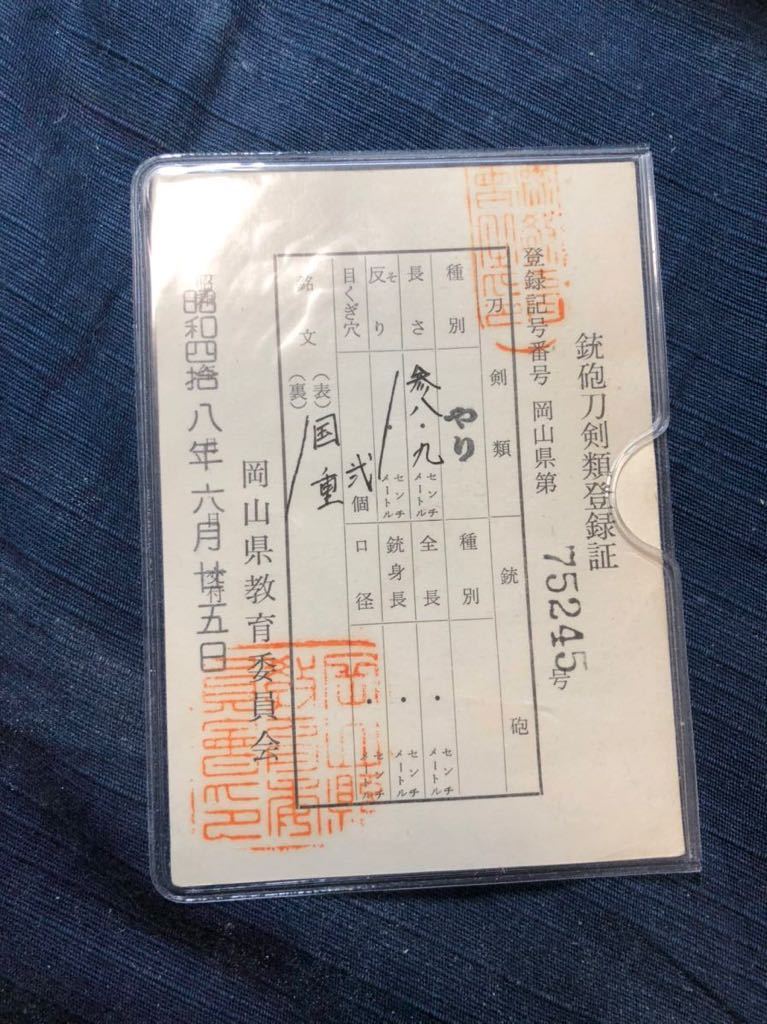 銃砲刀剣類登録証
登録記号番号 岡山県第 75245 号
刀剣類
種別 やり
長さ 参八・九 センチメートル
反り そ ・ センチメートル
目くぎ穴 弐 個
銘文 (表) 国重
(裏)
銃砲
種別
全長 ・ センチメートル
銃身長 ・ センチメートル
口径 ・ センチメートル
岡山県教育委員会
昭和四拾八年六月廿五日